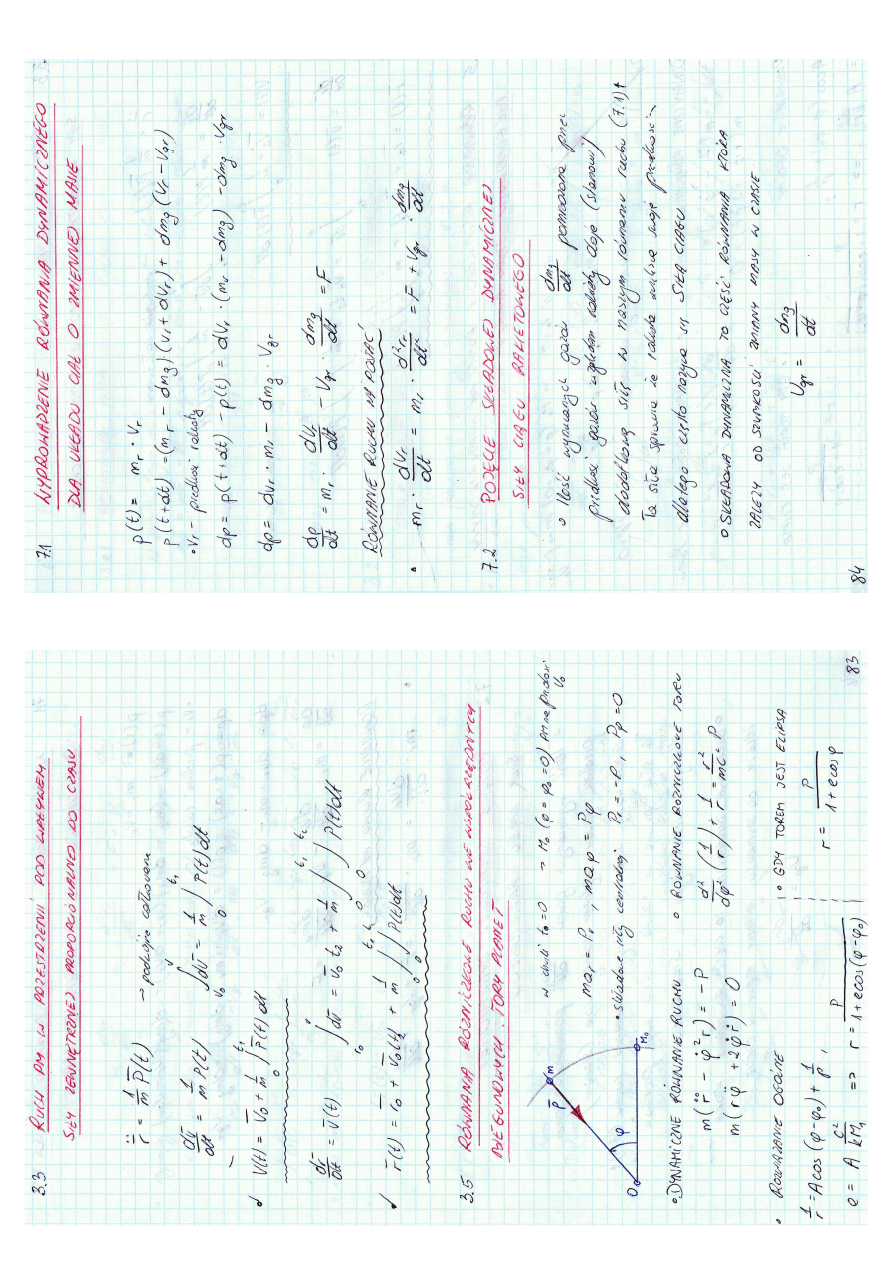 3.3 RUCH PM W PRZESTRZENI POD WPŁYWEM
SIŁY ZEWNĘTRZNEJ PROPORCJONALNEJ DO CZASU
r̈ = 1/m P̄(t) → podwójne całkowanie
dv̄/dt = 1/m P(t) ∫dv̄ = 1/m ∫ P(t)dt
V(t) = V̄0 + 1/m ∫ P(t) dt
dr̄/dt = v̄(t) ∫dv̄ = v̄0 t2 + 1/m ∫∫ P(t)dt
r̄(t) = r0 + v̄0(t) + 1/m ∫∫ P(t)dt
3.5 RÓWNANIA RÓŻNICZKOWE RUCHU WE WSPÓŁRZĘDNYCH
BIEGUNOWYCH. TORY PLANET
P̄ m
φ
O M0
w chwili t0=0 → M0 (φ = φ0 = 0) PM ma prędkość V0
mar = Pr , maφ = Pφ
• składowe siły centralnej Pr = -P , Pφ = 0
• DYNAMICZNE RÓWNANIE RUCHU
m(r̈ - φ̇² r) = -P
m(rφ̈ + 2φ̇ṙ) = 0
• RÓWNANIE RÓŻNICZKOWE TORU
d²/dφ² (1/r) + 1/r = r²/mc² P
• ROZWIĄZANIE OGÓLNE
1/r = A cos(φ-φ0) + 1/P ,
e = A c²/kM1 => r = P/1+e cos(φ-φ0)
• GDY TOREM JEST ELIPSA
r = P/1+e cosφ
83
7.1 WYPROWADZENIE RÓWNANIA DYNAMICZNEGO
DLA UKŁADU CIAŁ O ZMIENNEJ MASIE
p(t) = mr · vr
p(t+dt) = (mr - dmg)(vr + dvr) + dmg (vr - vgr)
• vr - prędkość rakiety
dp = p(t+dt) - p(t) = dvr · (mr - dmg) - dmg · vgr
dp = dvr · mr - dmg · vgr
dp/dt = mr · dvr/dt - vgr · dmg/dt = F
RÓWNANIE RUCHU MA POSTAĆ
• mr · dvr/dt = mr · d²r/dt² = F + vgr · dmg/dt
7.2 POJĘCIE SKŁADOWEJ DYNAMICZNEJ
SIŁY CIĄGU RAKIETOWEGO
• Ilość wyrzucanych gazów dmg/dt pomnożona przez
prędkość gazów względem rakiety daje (stanowi)
dodatkową siłę w naszym równaniu ruchu (7.1)
Ta siła sprawia że rakieta zwiększa swoje prędkości
dlatego często nazywa się SIŁĄ CIĄGU
• SKŁADOWA DYNAMICZNA TO CZĘŚĆ RÓWNANIA KTÓRA
ZALEŻY OD SZYBKOŚCI ZMIANY MASY W CZASIE
vgr = dmg/dt
84